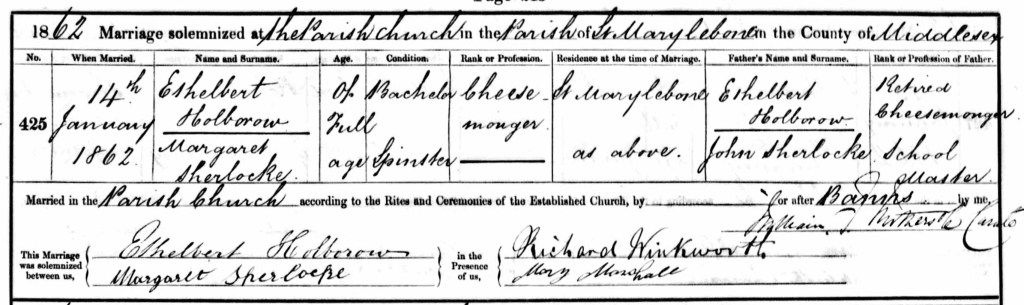 1862 Marriage solemnized at the Parish Church in the Parish of St Marylebone in the County of Middlesex
No. When Married. Name and Surname. Age. Condition. Rank or Profession. Residence at the time of Marriage. Father's Name and Surname. Rank or Profession of Father.
425 14th January 1862 Ethelbert Holborow Of Full age Bachelor Cheesemonger St Marylebone Ethelbert Holborow Retired Cheesemonger
Margaret Sherlocke Spinster as above. John Sherlocke School Master
Married in the Parish Church according to the Rites and Ceremonies of the Established Church, by or after Banns by me,
William J Curate
This Marriage was solemnized between us, Ethelbert Holborow in the Presence of us, Richard Winkworth
Margaret Sherlocke Mary Marshall